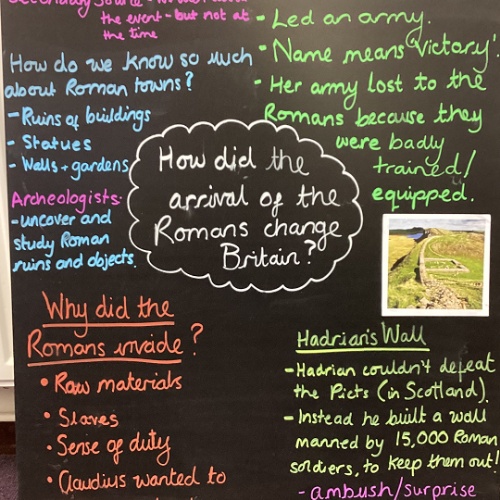 the event - but not at
the time
How do we know so much
about Roman towns?
- Ruins of buildings
- Statues
- Walls + gardens
Archeologists:
- uncover and
study Roman
ruins and objects.
- Led an army.
- Name means 'victory'.
- Her army lost to the
Romans because they
were badly
trained/
equipped.
How did the
arrival of the
Romans change
Britain?
Why did the
Romans invade?
• Raw materials
• Slaves
• Sense of duty
• Claudius wanted to
Hadrian's Wall
- Hadrian couldn't defeat
the Picts (in Scotland).
- Instead he built a wall
manned by 15,000 Roman
soldiers, to keep them out!
- ambush/surprise